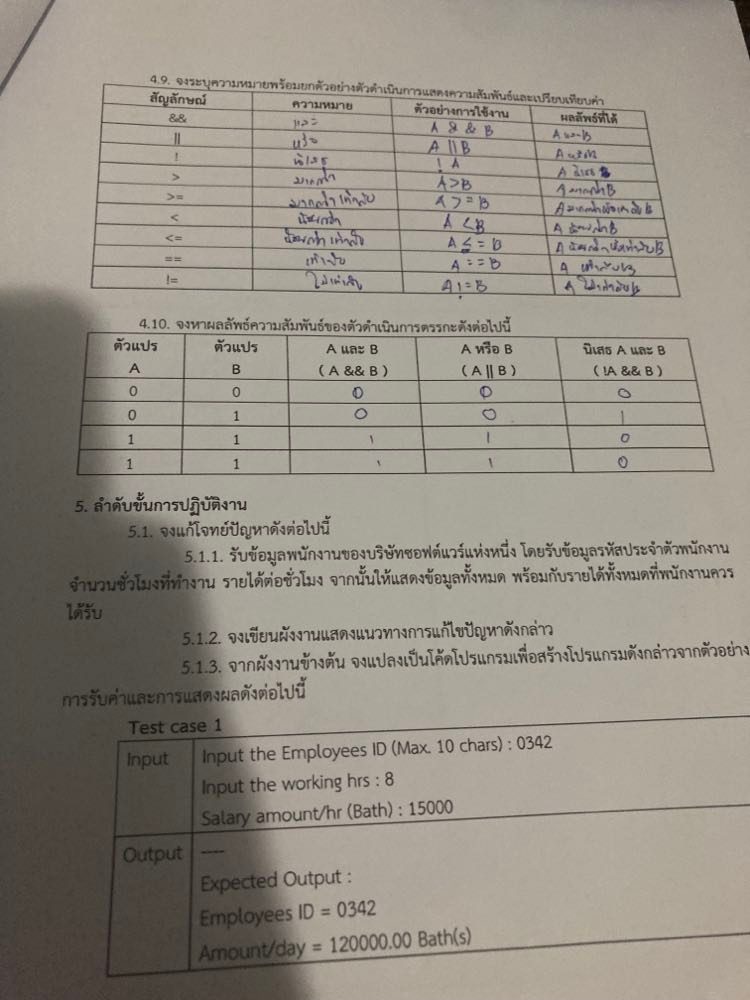 4.9. จงระบุความหมายพร้อมยกตัวอย่างตัวดำเนินการแสดงความสัมพันธ์และเปรียบเทียบค่า
สัญลักษณ์ ความหมาย ตัวอย่างการใช้งาน ผลลัพธ์ที่ได้
&& และ A && B A และ B
|| หรือ A || B A หรือ B
! นิเสธ ! A A นิเสธ
> มากกว่า A > B A มากกว่า B
>= มากกว่าเท่ากับ A >= B A มากกว่าเท่ากับ B
< น้อยกว่า A < B A น้อยกว่า B
<= น้อยกว่าเท่ากับ A <= B A น้อยกว่า B
== เท่ากับ A == B A เท่ากับ B
!= ไม่เท่ากับ A != B A ไม่เท่ากับ B
4.10. จงหาผลลัพธ์ความสัมพันธ์ของตัวดำเนินการตรรกะดังต่อไปนี้
ตัวแปร ตัวแปร A และ B A หรือ B นิเสธ A และ B
A B ( A && B ) ( A || B ) ( !A && B )
0 0 0 0 0
0 1 0 0 1
1 1 1 1 0
1 1 1 1 0
5. ลำดับขั้นการปฏิบัติงาน
5.1. จงแก้โจทย์ปัญหาดังต่อไปนี้
5.1.1. รับข้อมูลพนักงานของบริษัทซอฟต์แวร์แห่งหนึ่ง โดยรับข้อมูลรหัสประจำตัวพนักงาน
จำนวนชั่วโมงที่ทำงาน รายได้ต่อชั่วโมง จากนั้นให้แสดงข้อมูลทั้งหมด พร้อมกับรายได้ทั้งหมดที่พนักงานควร
ได้รับ
5.1.2. จงเขียนผังงานแสดงแนวทางการแก้ไขปัญหาดังกล่าว
5.1.3. จากผังงานข้างต้น จงแปลงเป็นโค้ดโปรแกรมเพื่อสร้างโปรแกรมดังกล่าวจากตัวอย่าง
การรับค่าและการแสดงผลดังต่อไปนี้
Test case 1
Input Input the Employees ID (Max. 10 chars) : 0342
Input the working hrs : 8
Salary amount/hr (Bath) : 15000
Output ----
Expected Output :
Employees ID = 0342
Amount/day = 120000.00 Bath(s)